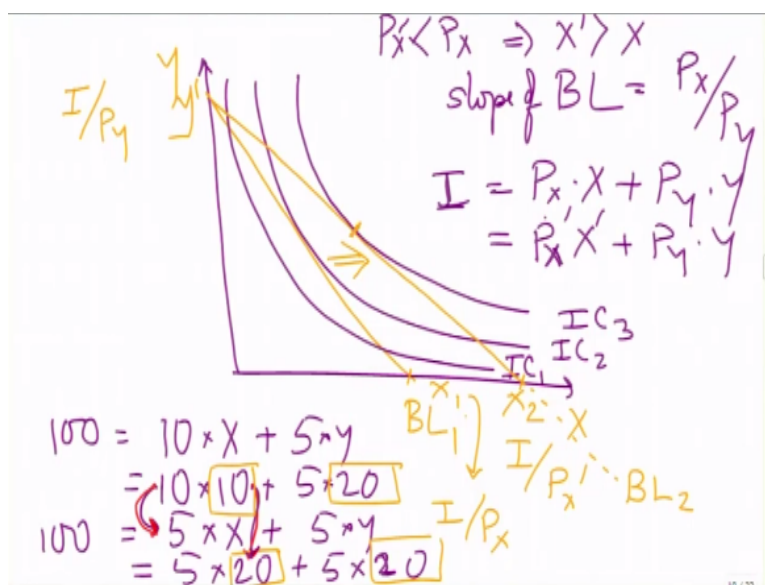 Px' < Px ⇒ X' > X
slope of BL = Px/Py
I/Py
Y1
I = Px · X + Py · Y
= Px' X' + Py · Y
IC3
IC2
IC1
X1
X2
X
BL1
I/Px'
BL2
I/Px
100 = 10 * X + 5 * Y
= 10 * 10 + 5 * 20
100 = 5 * X + 5 * Y
= 5 * 20 + 5 * 20